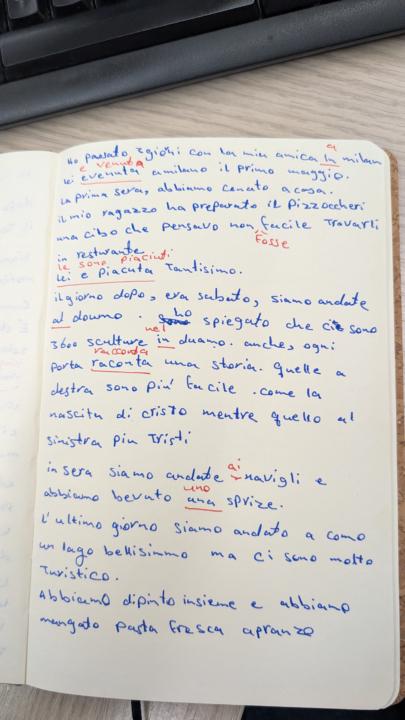 a
Ho passato 3 giorni con la mia amica in milan
è venuta
lei evenuta amilano il primo maggio.
La prima sera, abbiamo cenato acasa.
il mio ragazzo ha preparato il Pizzoccheri
una cibo che pensavo non facile Travarli
fosse
in resturante
le sono piaciuti
Lei e piacuta Tantisimo.
il giorno dopo, era sabato, siamo andate
al doumo. ho spiegato che ci sono
nel
3600 sculture in duamo. anche, ogni
racconta
porta raconta una storia. quelle a
destra sono più facile. come la
nascita di cristo mentre quello al
sinistra piu Tristi
ai
in sera siamo andate navigli e
uno
abbiamo bevuto una sprize.
L'ultimo giorno siamo andato a como
un lago bellisimmo ma ci sono molto
Turistico.
Abbiamo dipinto insieme e abbiamo
mangato pasta fresca apranzo